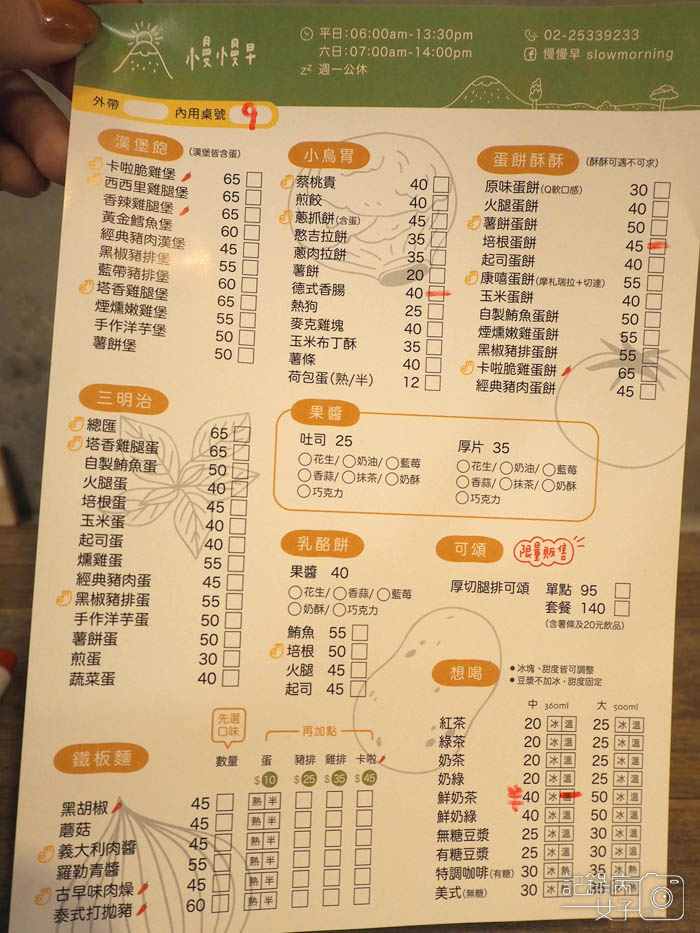 慢慢早
平日:06:00am-13:30pm
六日:07:00am-14:00pm
zZ 週一公休
02-25339233
慢慢早 slowmorning
外帶 內用桌號 9
漢堡飽 (漢堡皆含蛋)
卡啦脆雞堡 65
西西里雞腿堡 65
香辣雞腿堡 65
黃金鱈魚堡 60
經典豬肉漢堡 45
黑椒豬排堡 55
藍帶豬排堡 60
塔香雞腿堡 65
煙燻嫩雞堡 55
手作洋芋堡 50
薯餅堡 50
小鳥胃
蔡桃貴 40
煎餃 40
蔥抓餅(含蛋) 45
憨吉拉餅 35
蔥肉拉餅 35
薯餅 20
德式香腸 40
熱狗 25
麥克雞塊 40
玉米布丁酥 35
薯條 40
荷包蛋(熟/半) 12
蛋餅酥酥 (酥酥可遇不可求)
原味蛋餅(Q軟口感) 30
火腿蛋餅 40
薯餅蛋餅 50
培根蛋餅 45
起司蛋餅 40
康嘻蛋餅(摩札瑞拉+切達) 55
玉米蛋餅 40
自製鮪魚蛋餅 50
煙燻嫩雞蛋餅 55
黑椒豬排蛋餅 55
卡啦脆雞蛋餅 65
經典豬肉蛋餅 45
三明治
總匯 65
塔香雞腿蛋 65
自製鮪魚蛋 50
火腿蛋 40
培根蛋 45
玉米蛋 40
起司蛋 40
燻雞蛋 55
經典豬肉蛋 45
黑椒豬排蛋 55
手作洋芋蛋 50
薯餅蛋 50
煎蛋 30
蔬菜蛋 40
果醬
吐司 25
花生/ 奶油/ 藍莓
香蒜/ 抹茶/ 奶酥
巧克力
厚片 35
花生/ 奶油/ 藍莓
香蒜/ 抹茶/ 奶酥
巧克力
乳酪餅
果醬 40
花生/ 香蒜/ 藍莓
奶酥/ 巧克力
鮪魚 55
培根 50
火腿 45
起司 45
可頌 限量販售
厚切腿排可頌 單點 95
套餐 140
(含薯條及20元飲品)
想喝
●冰塊、甜度皆可調整
●豆漿不加冰、甜度固定
中 360ml 大 500ml
紅茶 20 冰 溫 25 冰 溫
綠茶 20 冰 溫 25 冰 溫
奶茶 20 冰 溫 25 冰 溫
奶綠 20 冰 溫 25 冰 溫
鮮奶茶 40 冰 溫 50 冰 溫
鮮奶綠 40 冰 溫 50 冰 溫
無糖豆漿 25 冰 溫 30 冰 溫
有糖豆漿 25 冰 溫 30 冰 溫
特調咖啡(有糖) 30 冰 熱 35 冰 熱
美式(無糖) 30 冰 熱 35 冰 熱
鐵板麵
先選口味
再加點
數量 蛋 豬排 雞排 卡啦
$10 $25 $35 $45
黑胡椒 45 熟 半
蘑菇 45 熟 半
義大利肉醬 45 熟 半
羅勒青醬 55 熟 半
古早味肉燥 45 熟 半
泰式打拋豬 60 熟 半
記錄丙女子